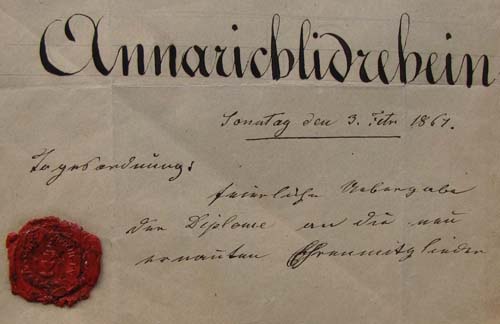 Annarichlidrehein
Sonntag den 3. Febr. 1867.
Tagesordnung:
feierliche Uebergabe
der Diplome an die neu
ernannten Ehrenmitglieder